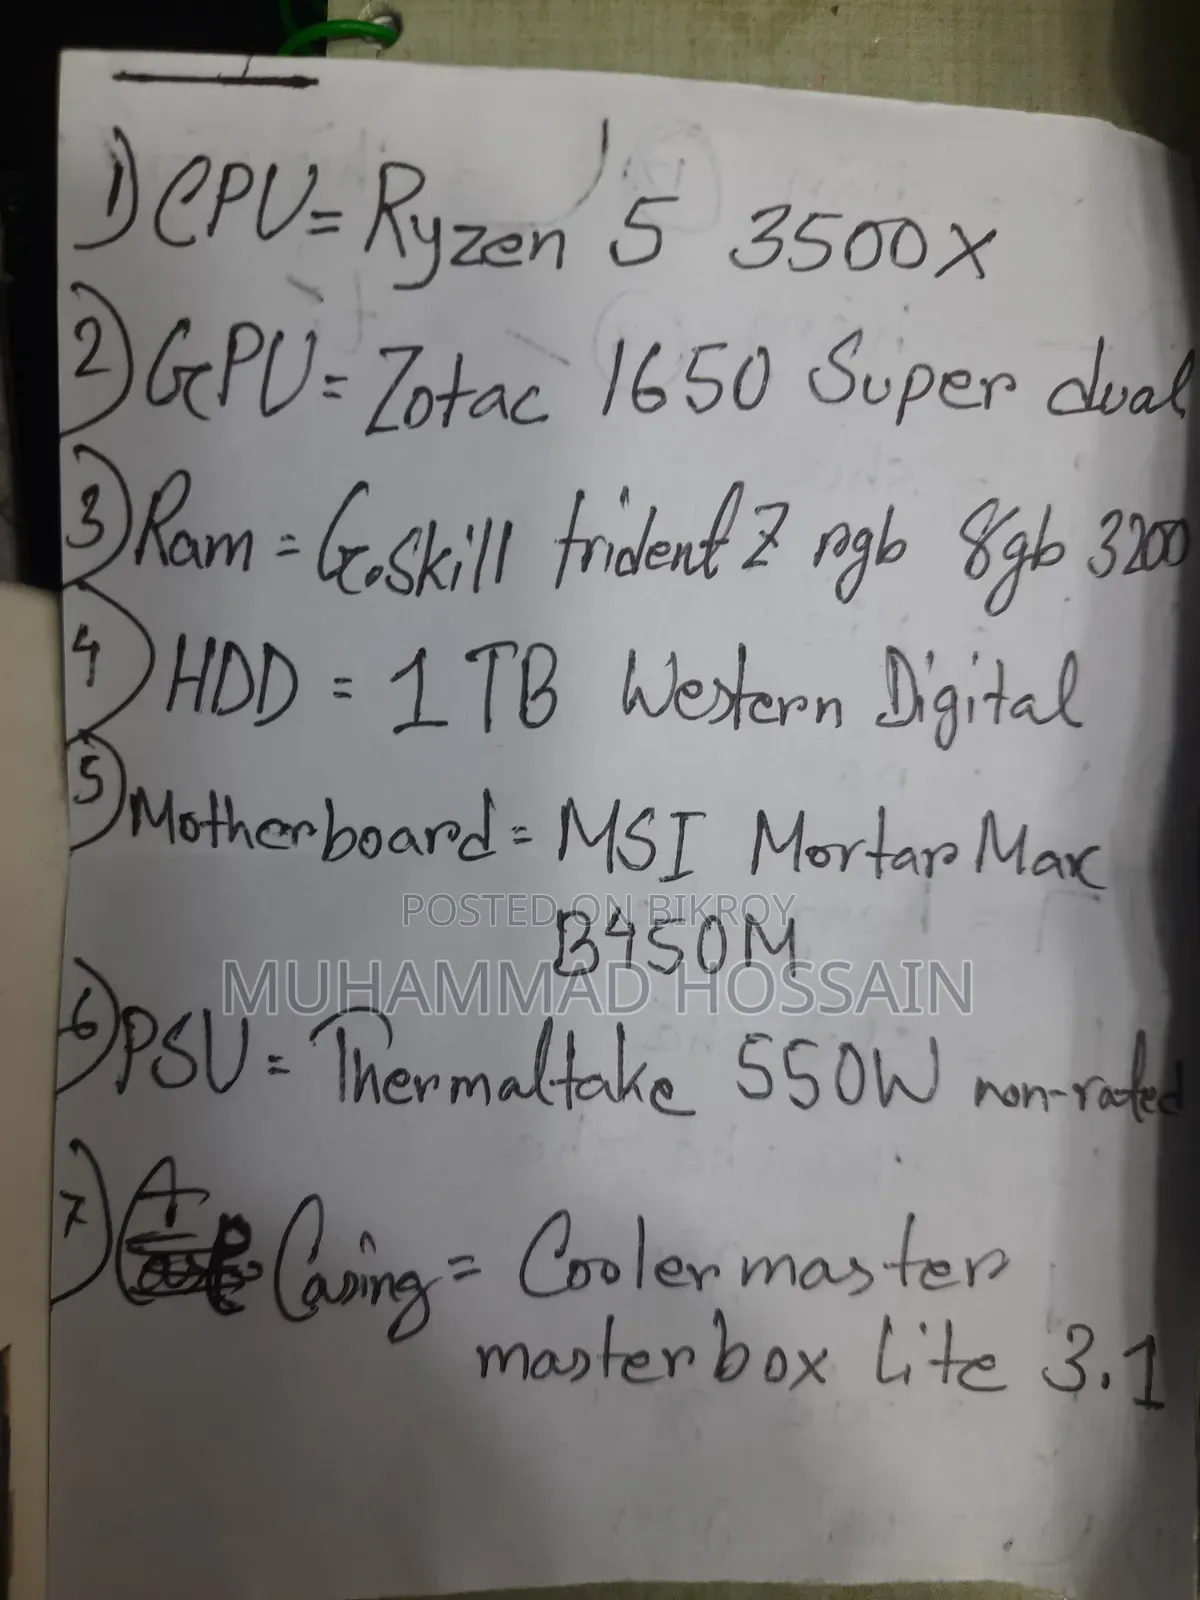 1) CPU = Ryzen 5 3500X
2) GPU = Zotac 1650 Super dual
3) Ram = G.Skill trident Z rgb 8gb 3200
4) HDD = 1 TB Western Digital
5) Motherboard = MSI Mortar Max
POSTED ON BIKROY
B450M
MUHAMMAD HOSSAIN
6) PSU = Thermaltake 550W non-rated
7) Casing = Cooler master
masterbox Lite 3.1